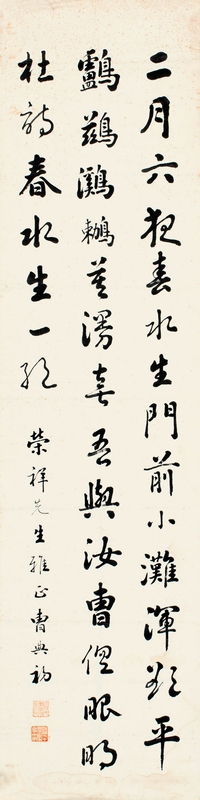 二月六夜春水生門前小灘渾欲平
鸕鶿鸂鶒莫漫喜吾與汝曹俱眼明
杜詩春水生一絕
榮祥先生雅正曹典初